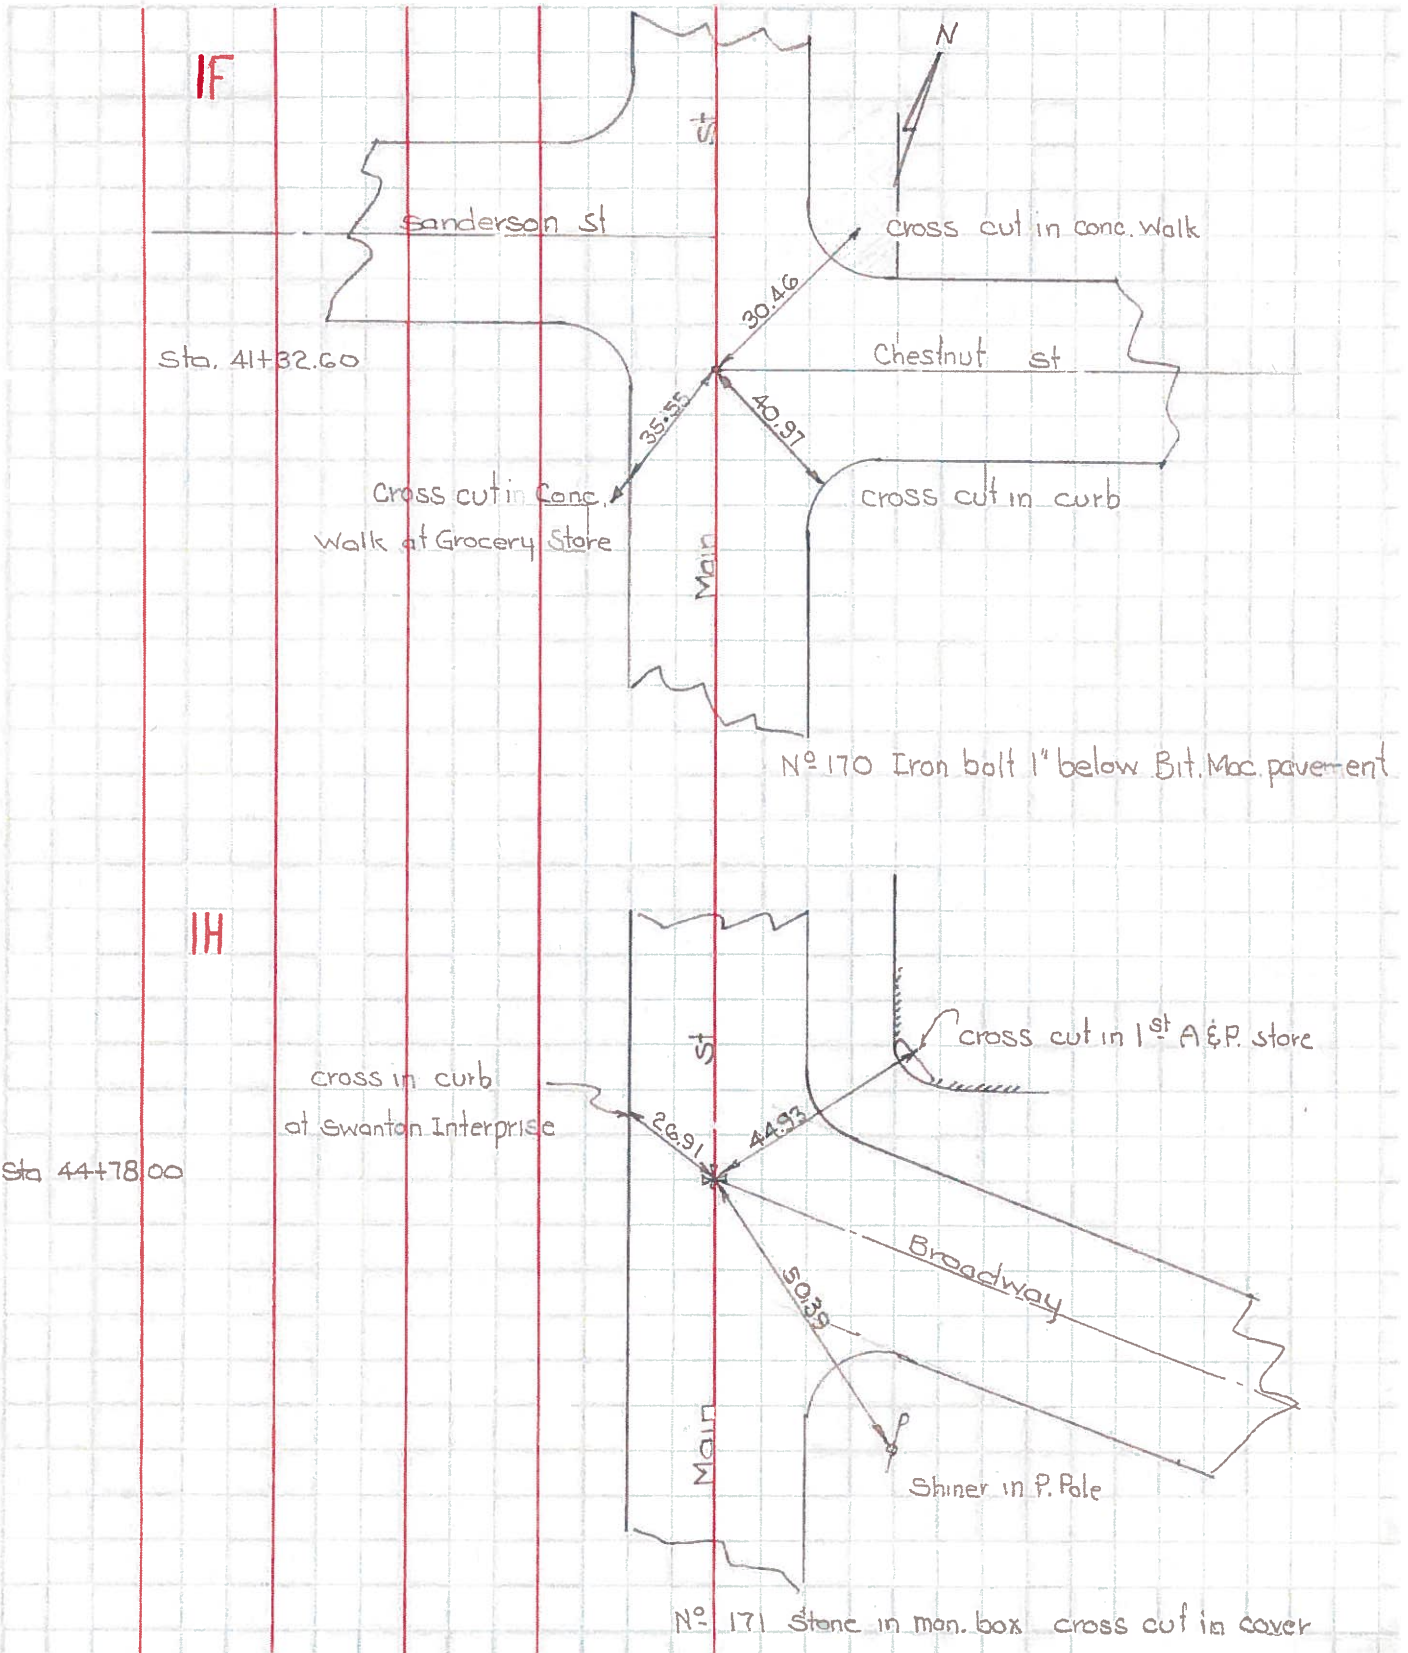 1F
N
St
Sanderson St
cross cut in conc. Walk
30.46
Sta. 41+32.60
Chestnut St
35.55
40.97
Cross cut in Conc.
Walk at Grocery Store
cross cut in curb
Main
Nº 170 Iron bolt 1" below Bit. Mac. pavement
1H
St
cross cut in 1st A & P. store
cross in curb
at Swanton Interprise
26.91
44.93
Sta 44+78.00
Broadway
50.39
Main
P
Shiner in P. Pole
Nº 171 Stone in mon. box cross cut in cover